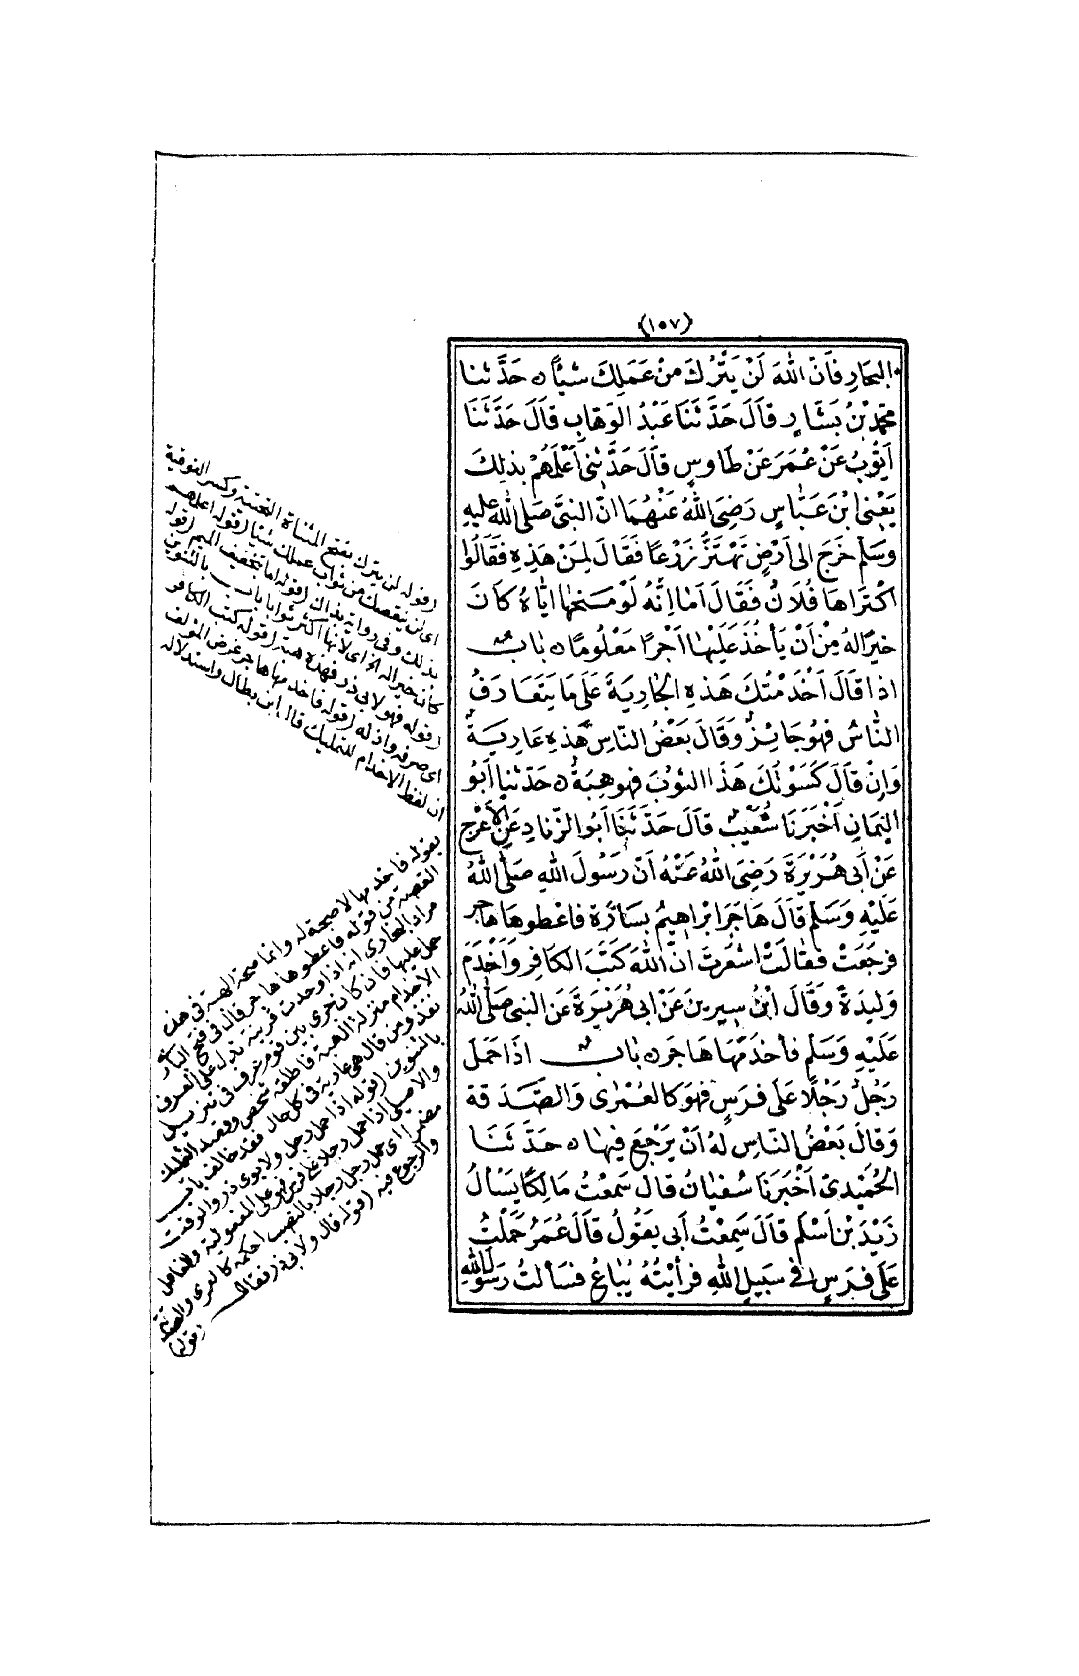 (١٥٧)
البحار فَاِنَّ اللهَ لَنْ يَتْرُكَ مِنْ عَمَلِكَ شَيْئًا ه حَدَّثنا
محمد بْنُ بَشَّارٍ قَالَ حَدَّثَنَا عَبْدُ الوَهَّابِ قَالَ حَدَّثَنَا
اَيُّوبُ عَنْ عُمَرَ عَنْ طَاوسٍ قَالَ حَدَّثنى اَعْلَمُهُمْ بذلِكَ
يَعْنِى ابْنَ عَبَّاسٍ رَضِىَ اللهُ عَنْهُمَا انّ النبىَّ صَلَّى اللهُ عليهِ
وَسَلَّم خَرَجَ الى اَرْضٍ تَهْتَزُّ زَرْعًا فَقَالَ لِمَنْ هَذِهِ فَقَالُوا
اكْتَرَاهَا فُلَانٌ فَقَالَ اَمَا اِنَّهُ لَوْ مَنَحَهَا ايَّاهُ كَانَ
خَيْرًا لهُ مِنْ اَنْ يَأخُذَ عَلَيْهَا اَجْرًا مَعْلُومًا ه بَابٌ
اذا قَالَ اَخْدَمْتُكَ هَذِهِ الجَارِيَةَ عَلَى مَا يَتَعَارَفُ
النَّاسُ فهُوَ جَائِزٌ وَقَالَ بَعْضُ النَّاسِ هَذِهِ عَارِيَةٌ
وَاِنْ قَالَ كَسَوْتُكَ هَذَا الثوْبَ فهُو هِبَةٌ ه حَدّثنا اَبُو
اليَمَانِ اَخْبَرَنَا شُعَيْبٌ قَالَ حَدَّثَنَا اَبُو الزِّنادِ عَنِ الاَعْرَج
عَنْ اَبى هُرَيْرَةَ رَضِىَ اللهُ عَنْهُ اَنَّ رَسُولَ اللهِ صَلَّى اللهُ
عَلَيْهِ وَسَلَّم قَالَ هَاجَرَ ابْرَاهِيمُ بسَارَّةَ فاعْطوهَا هَاجَر
فرجَعَتْ فقَالَتْ اشَعَرتَ انَّ اللهَ كَبَتَ الكَافِرَ وَاَخْدَمَ
وَلِيدَةً وَقَالَ ابْنُ سِيرِينَ عَنْ ابى هُرَيْرَةَ عَنِ النبىِّ صَلَّى اللهُ
عَلَيْهِ وَسَلَّم فأخْدَمَهَا هَاجَرَ ه بَابٌ اذَا حَمَلَ
رَجُلٌ رَجُلًا عَلَى فَرَسٍ فهُوَ كالعُمْرَى وَالصَّدَقة
وَقَالَ بَعْضُ النَّاسِ لهُ اَنْ يَرْجِعَ فِيهَا ه حَدَّثَنَا
الحُمَيْدِىُّ اَخْبَرَنَا سُفيَانُ قَالَ سَمِعْتُ مَالِكًا يَسْاَلُ
زَيْدَ بْنَ اَسْلَمَ قَالَ سَمِعْتُ اَبى يَقُولُ قَالَ عُمَرُ حَمَلْتُ
عَلَى فَرَسٍ فى سَبِيلِ اللهِ فرَأيْتُهُ يُبَاعُ فسَألتُ رَسُولَ اللهِ
(قوله لن يترك بفتح المثناة التحتية وكسر الفوقية
اى لن ينقصك من ثواب عملك شيئا (قوله اعلمهم
بذلك وفى رواية بذاك (قوله اما بتخفيف الميم (قوله
كان خيرا له الخ اى لانها اكثر ثوابا باب بالتنوين
(قوله فهو لابى ذر فهذه هبة (قوله كبت الكافر
اى صرفه واذله (قوله فاخدمها هاجر غرض المؤلف
ان لفظ الاخدام للتمليك قال ابن بطال واستدلاله
بقوله فاخدمها لا يصح له وانما صحة الهبة فى هذه
القصة من قوله فاعطوها هاجر قال فى فتح البارى
مراد البخارى انه اذا وجدت قرينة تدل على العرف
حمل عليها فان كان جرى بين قوم عرف فى تنزيل
الاخدام منزلة الهبة فاطلقه شخص وقصد التمليك
نفذ ومن قال هى عارية فى كل حال فقد خالف باب
بالتنوين (قوله اذا حمل رجل ولابوى ذر والوقت
والاصيلى اذا حمل رجلا على فرس فهو على المفعولية والفاعل
مضمر اى حمل رجل رجلا بالنصب احكمه كالعمرى والصدقة
والرجوع فيه (قوله قال ولابى ذر فقال
(قوله